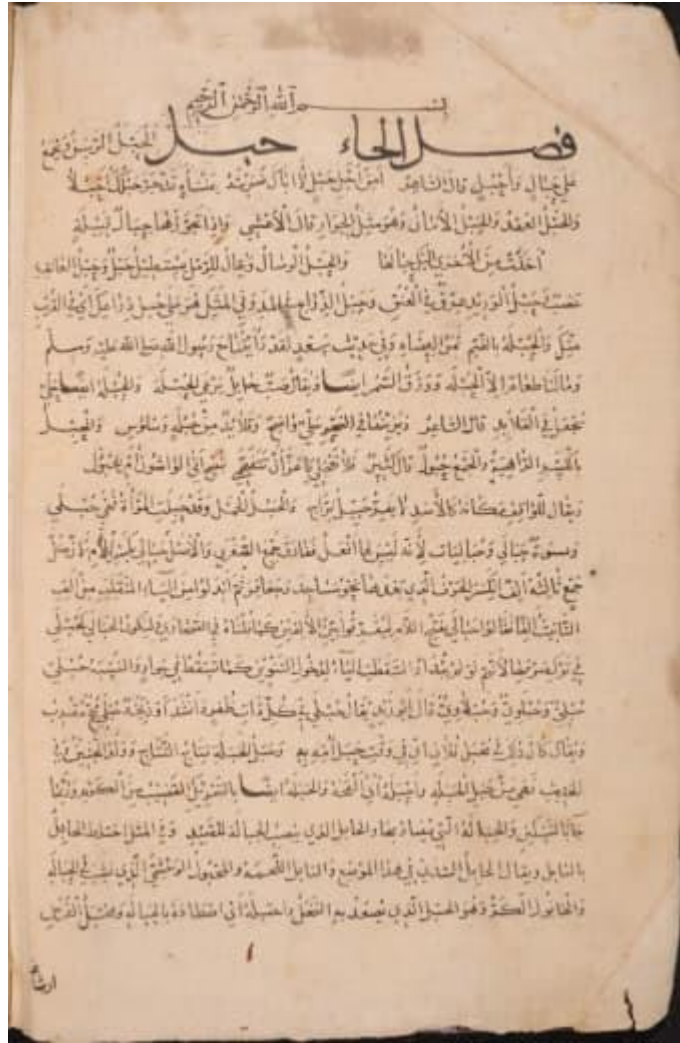 بسم الله الرحمن الرحيم
فصل الحاء حبل الحبل الرسن ويجمع
على حبال وأحبل قال الشاعر أمن أجل حبل لا أباك ضربته بمنسأة قد جر حبلك أحبلا
والحبل العهد والحبل الأمان وهو مثل الجوار قال الأعشى وإذا تجوزها حبال قبيلة
أخذت من الأخرى إليك حبالها والحبل الوصال ويقال للرمل يستطيل حبل وحبل العاتق
عصب وحبل الوريد عرق في العنق وحبل الذراع في اليد وفي المثل هو على حبل ذراعك أي في القرب
منك والحبلة بالضم ثمر العضاه وفي حديث سعد لقد رأيتنا مع رسول الله صلى الله عليه وسلم
وما لنا طعام إلا الحبلة وورق السمر ايضا ويقال ضب حابل يرعى الحبلة والحبلة ايضا حلي
يجعل في القلائد قال الشاعر ويزينها في النحر حلي واضح وقلائد من حبلة وسلوس والحبل
بالكسر الداهية والجمع حبول قال كثير فلا تعجلي يا عز أن تتفهمي بنصح أتى الواشون أم بحبول
ويقال للواقف مكانه كالأسد لا يفر حبيل براح والحبل الحمل وقد حبلت المرأة فهي حبلى
ونسوة حبالى وحباليات لأنه ليس لها أفعل ففارق جمع الصغرى والأصل حبالي بكسر اللام لأن كل
جمع ثالثه ألف انكسر الحرف الذي بعدها نحو مساجد وجعافر ثم أبدلوا من الياء المنقلبة من ألف
التأنيث ألفا فقالوا حبالى بفتح اللام ليفرقوا بين الألفين كما قلناه في الصحاري وليكون الحبالى كحبلى
في ترك صرفها لأنهم لو لم يبدلوا لسقطت الياء لدخول التنوين كما تسقط في جوار والنسبة حبلي
حبلي وحبلوي وحبلاوي قال أبو زيد يقال حبلى في كل ذات ظفر وانشد أو ذيخة حبلى مجح مقرب
ويقال كان ذلك في محبل فلان أي في وقت حبل أمه به وحبل الحبلة نتاج النتاج وولد الجنين وفي
الحديث نهى عن حبل الحبلة والحبلة ايضا بالتحريك القضيب من الكرم وربما
جاء بالتسكين والحبالة التي يصاد بها والحابل الذي ينصب الحبالة للصيد وفي المثل اختلط الحابل
بالنابل ويقال الحابل السدى في هذا الموضع والنابل اللحمة والمحبول الوحشي الذي نشب في الحبالة
والحابول الكر وهو الحبل الذي يصعد به النخل واحتبله أي اصطاده بالحبالة ومحتبل الفرس
ارساغه